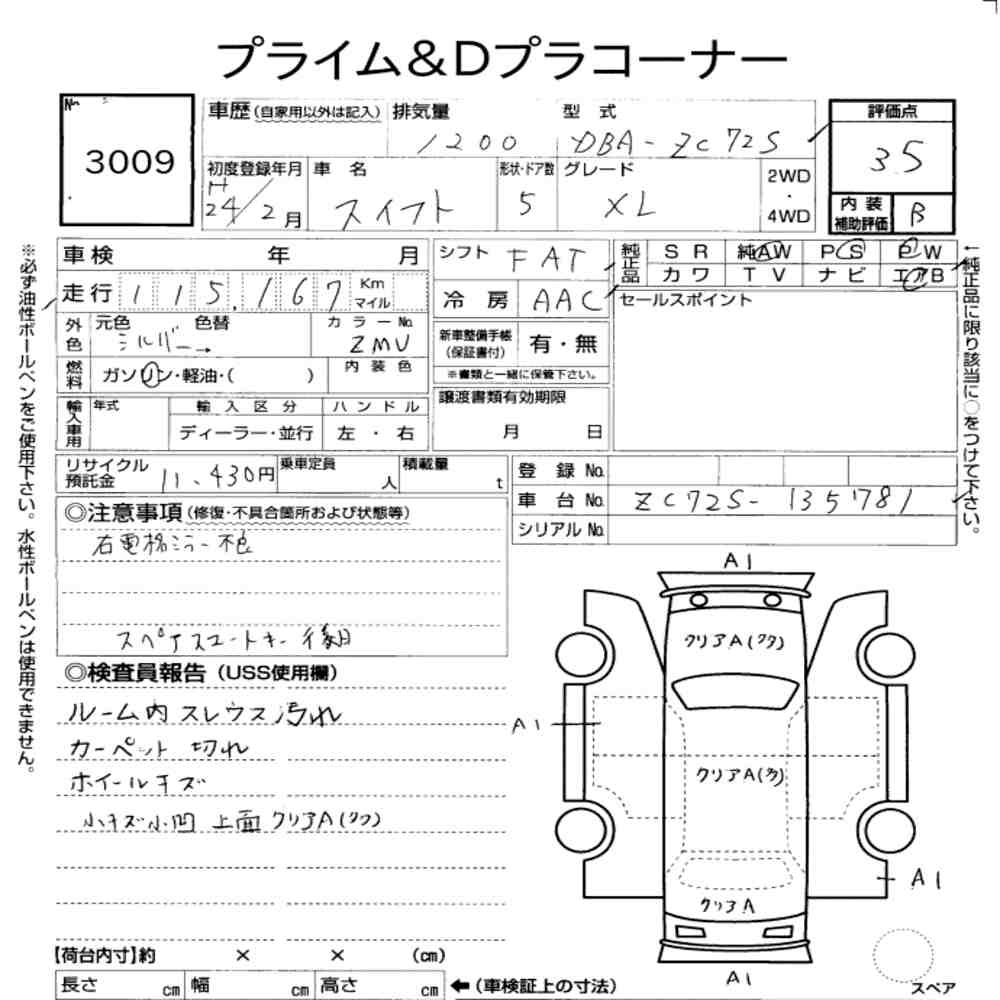 プライム&Dプラコーナー
No. 3009
車歴(自家用以外は記入) 排気量 型式
1200 DBA-ZC72S
評価点
3.5
内装補助評価 B
初度登録年月 車名 形状・ドア数 グレード
H24/2月 スイフト 5 XL
2WD・4WD
※必ず油性ボールペンをご使用下さい。水性ボールペンは使用できません。
車検 年 月
シフト FAT
純正品 SR 純AW PS PW
カワ TV ナビ エアB
走行 115,167 Km マイル
冷房 AAC
セールスポイント
外色 元色 色替 カラーNo.
シルバー ZMU
新車整備手帳(保証書付) 有・無
※書類と一緒に保管下さい。
燃料 ガソリン・軽油・( ) 内装色
譲渡書類有効期限
月 日
輸入車用 年式 輸入区分 ハンドル
ディーラー・並行 左・右
←純正品に限り該当に○をつけて下さい。
リサイクル預託金 11,430円 乗車定員 人 積載量 t
登録No.
車台No. ZC72S-135781
シリアルNo.
◎注意事項(修復・不具合箇所および状態等)
右電格ミラー不良
スペアスマートキー後日
◎検査員報告(USS使用欄)
ルーム内スレウス汚れ
カーペット切れ
ホイールキズ
小キズ小凹 上面クリアA(クク)
A1
クリアA(クタ)
A1
クリアA(タ)
A1
クリアA
A1
スペア
【荷台内寸】約 × × (cm)
長さ cm 幅 cm 高さ cm ←(車検証上の寸法)